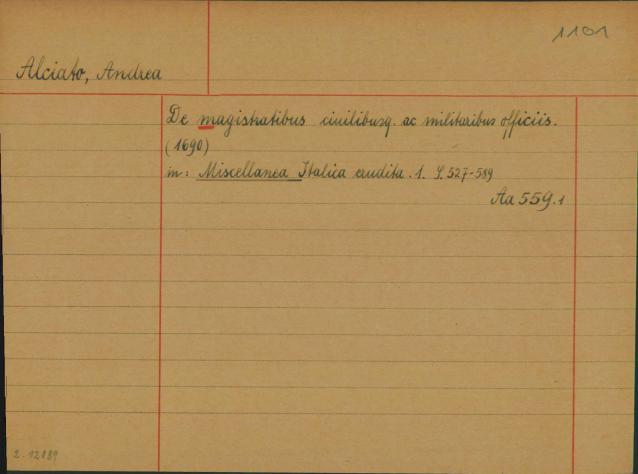 1101
Alciato, Andrea
De magistratibus civilibusq. ac militaribus officiis.
(1690)
in: Miscellanea Italica erudita. 1. S. 527-589
Aa 559.1
2-12189